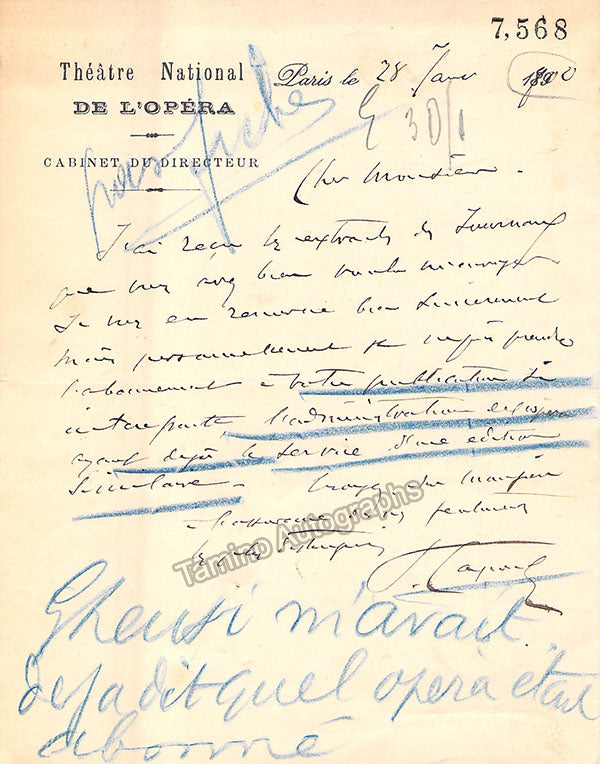 7,568
Théâtre National
DE L'OPÉRA
CABINET DU DIRECTEUR
Paris le 28 Janv 1890
30/1
pas fiche
Cher Monsieur.
J'ai reçu les extraits de Journaux
que vous avez bien voulu m'envoyer
Je vous en remercie bien sincèrement
mais personnellement je ne puis prendre
l'abonnement à votre publication si
intéressante, l'administration de l'opéra
ayant déjà le service d'une édition
similaire.
à l'assurance de mes sentiments
les plus distingués
Tamino Autographs
Gheusi m'avait
deja dit que l'opera etait
abonné